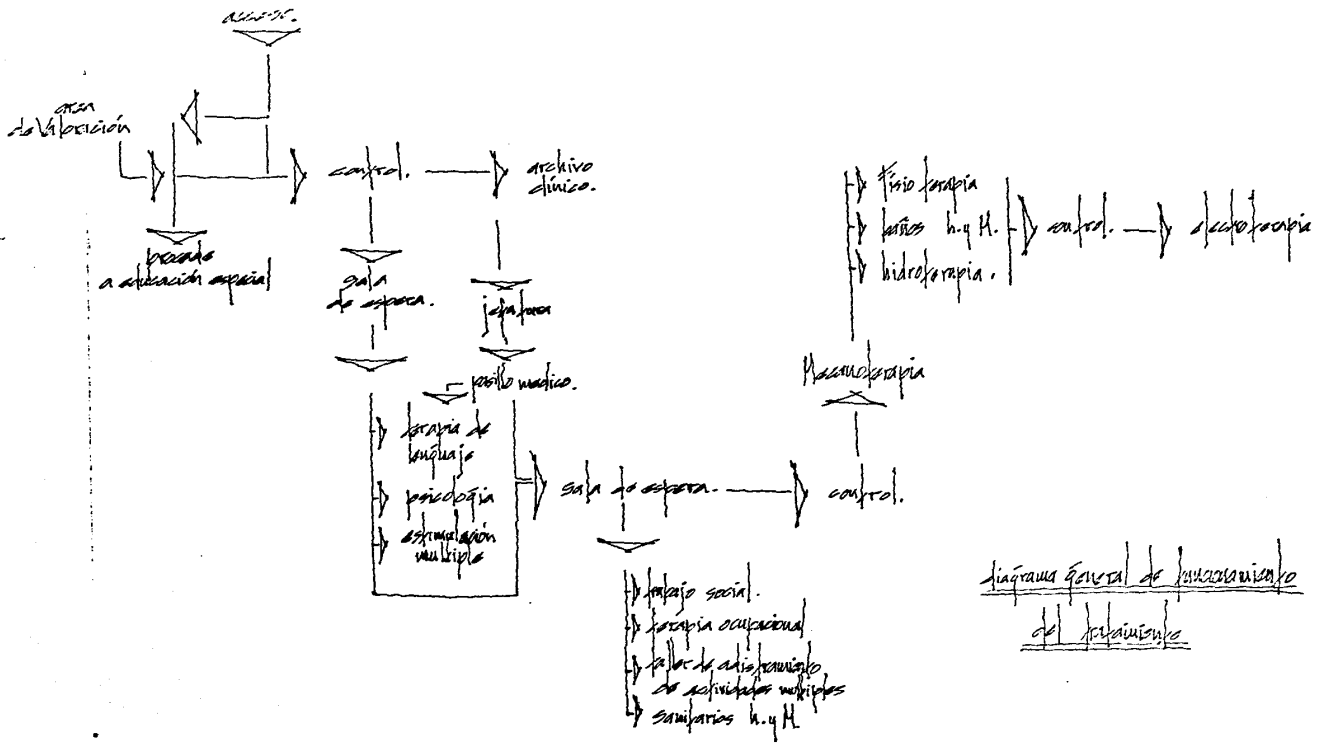 acceso.
area
de Valoración
control.
archivo
clínico.
procede
a educación especial
sala
de espera.
jefatura
pasillo medico.
terapia de
lenguaje
psicología
estimulación
multiple
sala de espera.
control.
trabajo social.
terápia ocupacional
taller de adistramiento
de actividades multiples
sanitarios h. y M
Mecanoterapia
fisioterapia
baños h. y M.
hidroterapia.
control.
electroterapia
diagrama general de funcionamiento
del tratamiento